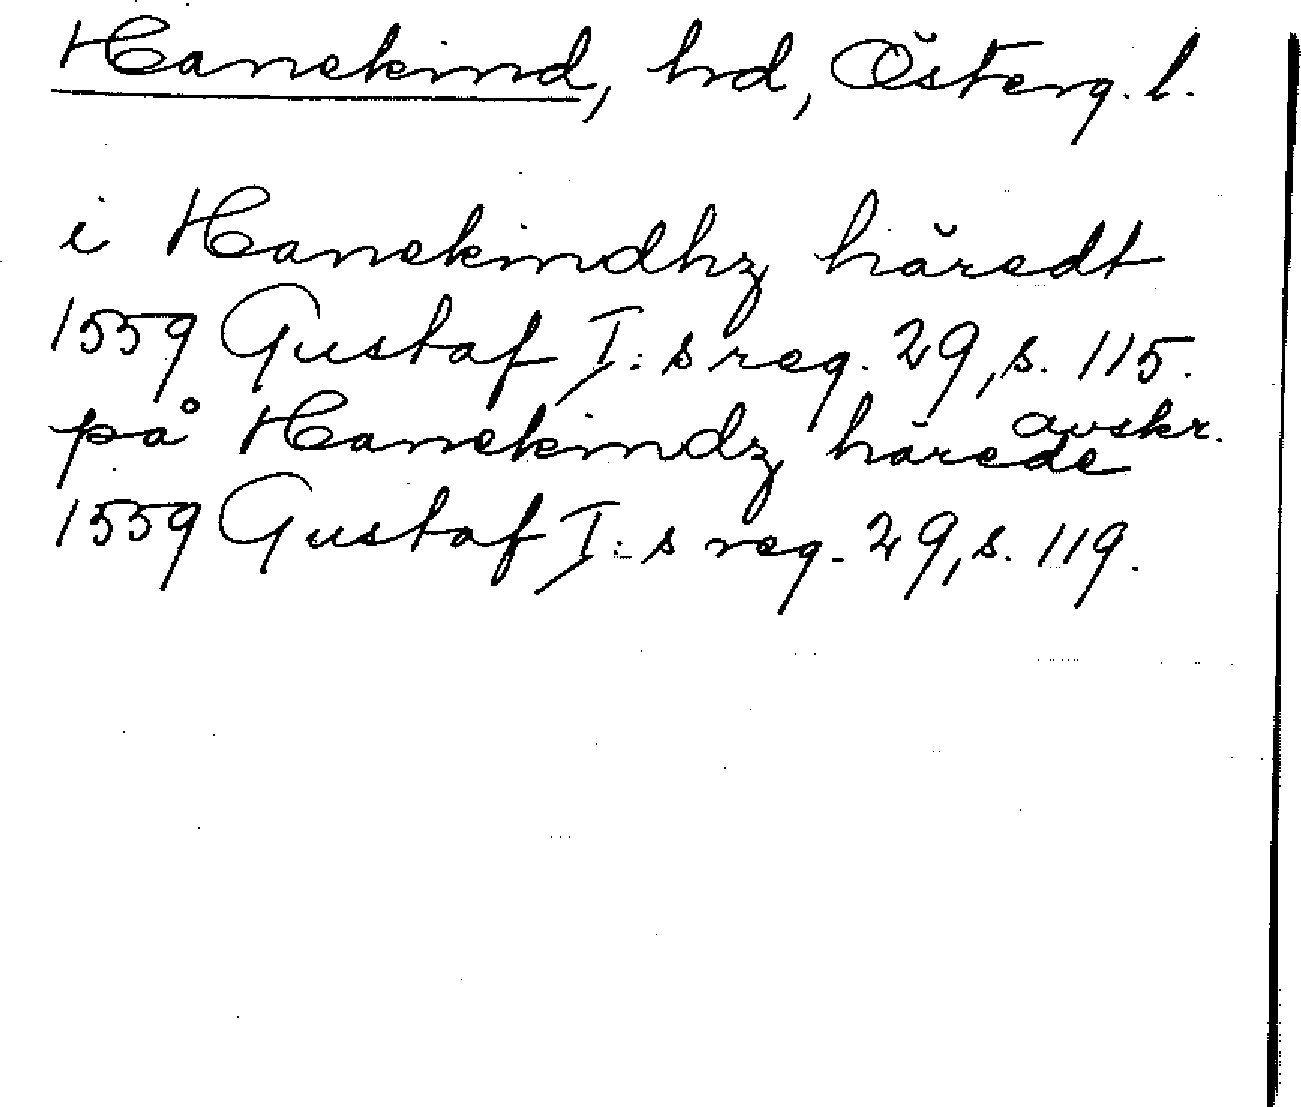 Hanekind, hd, Österg. l.
i Hanekindhz häredt
1559 Gustaf I:s reg. 29, s. 115.
avskr.
på Hanekindz härede
1559 Gustaf I:s reg. 29, s. 119.